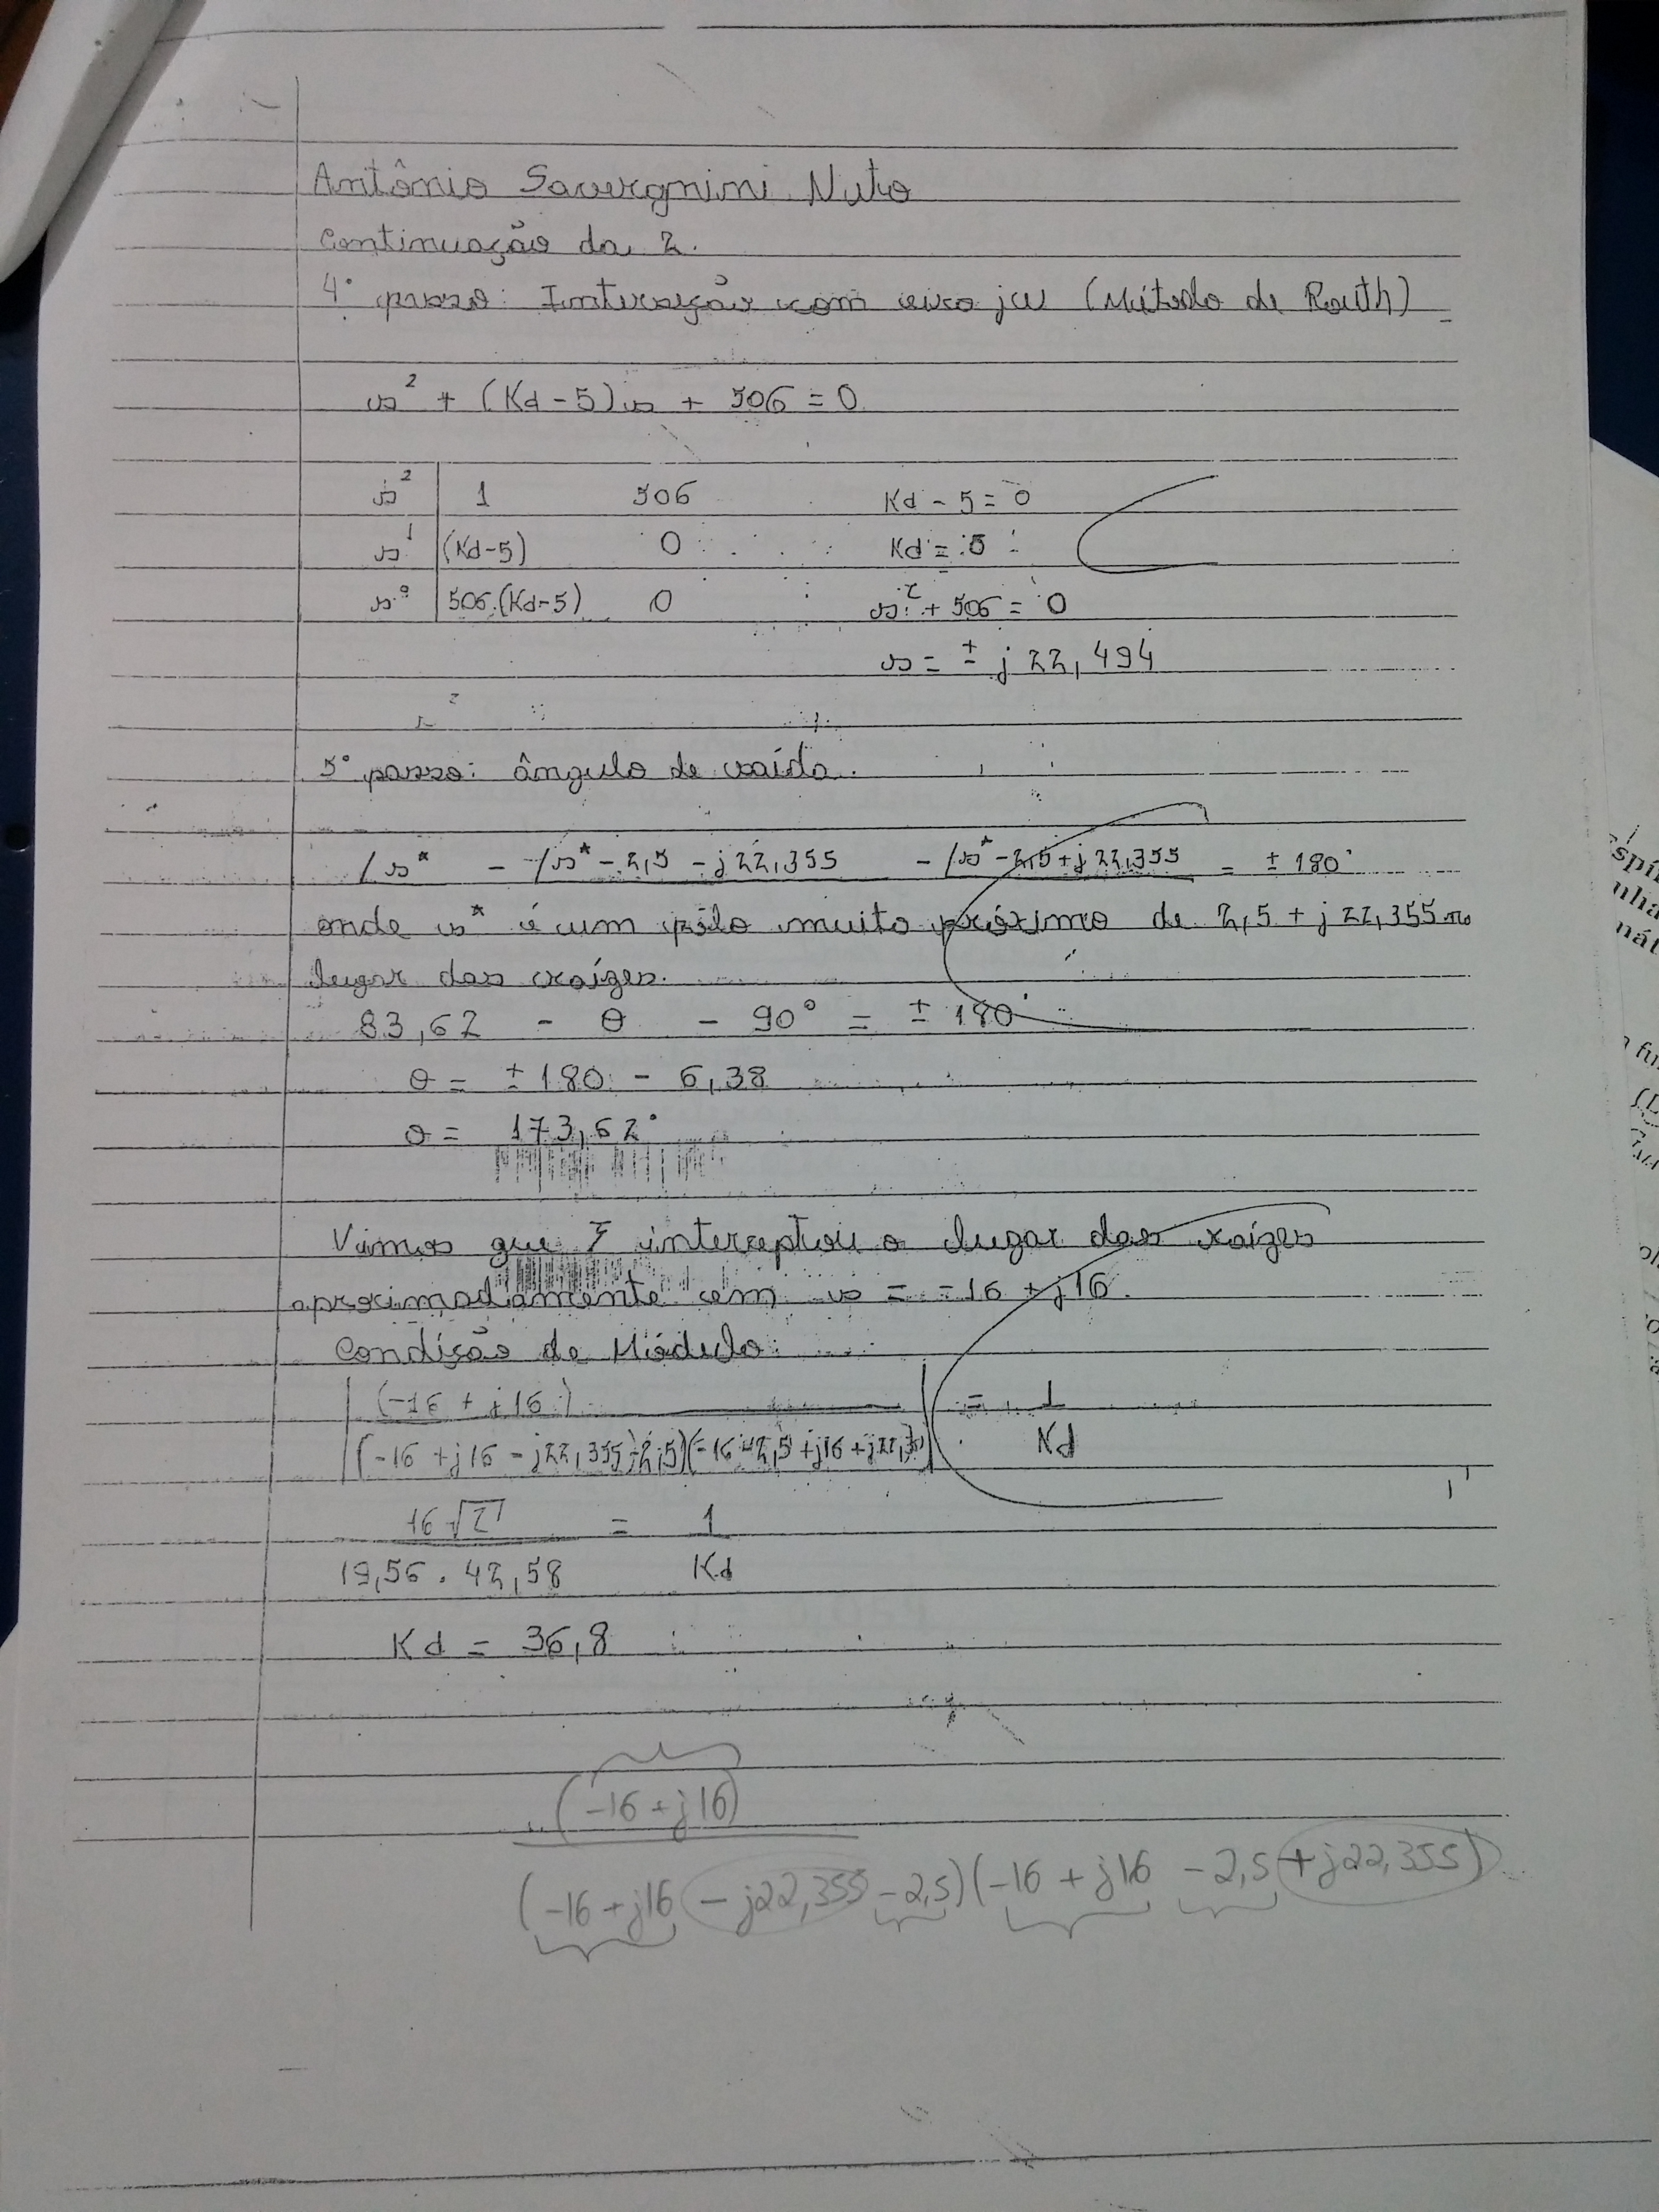 Antônio Savergnini Neto
Continuação da 2.
4° passo: Interseção com eixo jw (Método de Routh)
s² + (Kd-5)s + 506 = 0
s² | 1 506 Kd - 5 = 0
s¹ | (Kd-5) 0 Kd = 5
s⁰ | 506.(Kd-5) 0 s² + 506 = 0
s = ± j 22,494
5° passo: ângulo de saída.
/s* - /s* - 2,5 - j22,355 - /s* - 2,5 + j22,355 = ± 180°
onde s* é um pólo muito próximo de 2,5 + j22,355 no
lugar das raízes.
83,62 - θ - 90° = ± 180°
θ = ± 180 - 6,38
θ = 173,62°
Vimos que ξ interceptou o lugar das raízes
aproximadamente em s = -16 + j16.
Condição de Módulo:
|(-16 + j16)| = 1
|(-16 + j16 - j22,355 - 2,5)(-16 - 2,5 + j16 + j22,355)| Kd
16√2 = 1
19,56 . 42,58 Kd
Kd = 36,8
(-16 + j16)
(-16 + j16 - j22,355 - 2,5)(-16 + j16 - 2,5 + j22,355)